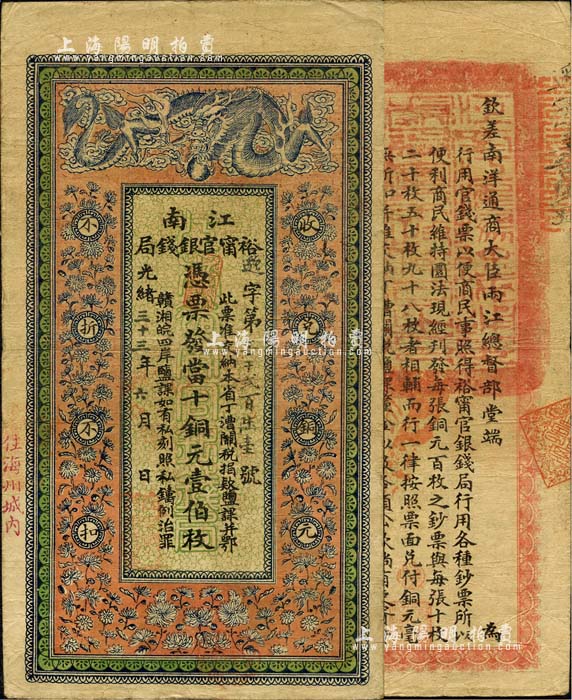 上海陽明拍賣
江南
裕甯官銀錢局
憑票發當十銅元壹佰枚
字第
百柒壹號
此票准完納本省丁漕關稅捐欵鹽課并鄂
贛湘皖四岸鹽課如有私刻照私鑄例治罪
光緒三十三年六月 日
收兌銅元
不折不扣
住海州城內
欽差南洋通商大臣兩江總督部堂端 為
行用官錢票以便商民事照得裕甯官銀錢局行用各種鈔票所
便利商民維持圜法現經刊發每張銅元百枚之鈔票與每張十枚
二十枚五十枚九十八枚者相輔而行一律按照票面兌付銅元
上海陽明拍賣
www.yangmingauction.com
上海陽明拍賣
www.yangmingauction.com
上海陽明拍賣
www.yangmingauction.com